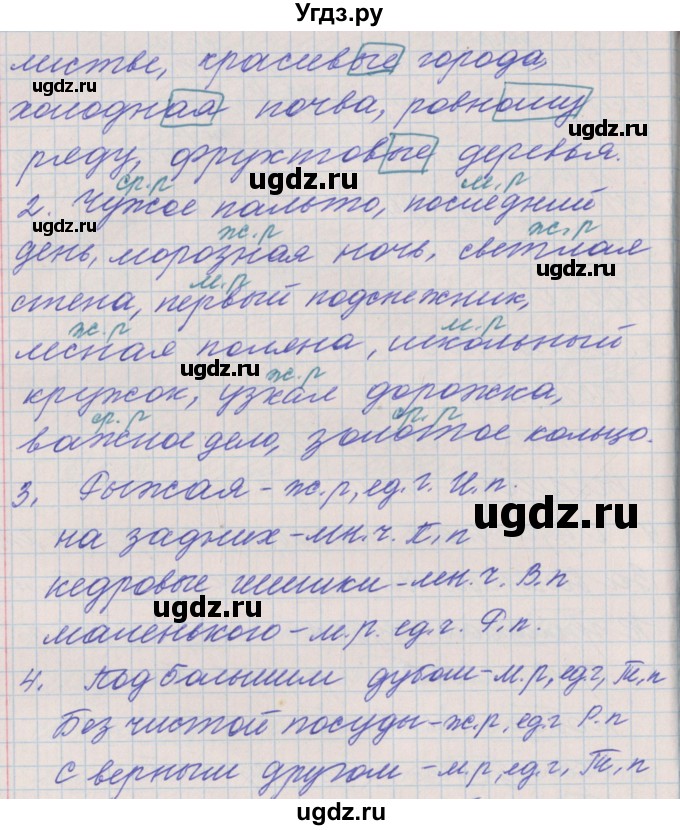 Угдз.ру
листве, красивые города,
холодная почва, ровному
ugdz.ru
ряду, фруктовые деревья.
ugdz.ru
ср.р м.р
2. Чужое пальто, последний
ugdz.ru
ж.р ж.р
день, морозная ночь, светлая
м.р
стена, первый подснежник,
ugdz.ru
ж.р м.р
лесная поляна, школьный
ugdz.ru ж.р
кружок, узкая дорожка,
ср.р ср.р
важное дело, золотое кольцо.
3. Рыжая – ж.р, ед.ч. И.п.
ugdz.ru
на задних – мн.ч. П.п
кедровые шишки – мн.ч. В.п
ugdz.ru
маленького – м.р. ед.ч. Р.п.
4. Под большим дубом – м.р, ед.ч, Т.п
ugdz.ru
Без чистой посуды – ж.р, ед.ч Р.п
с верным другом – м.р, ед.ч, Т.п
ugdz.ru